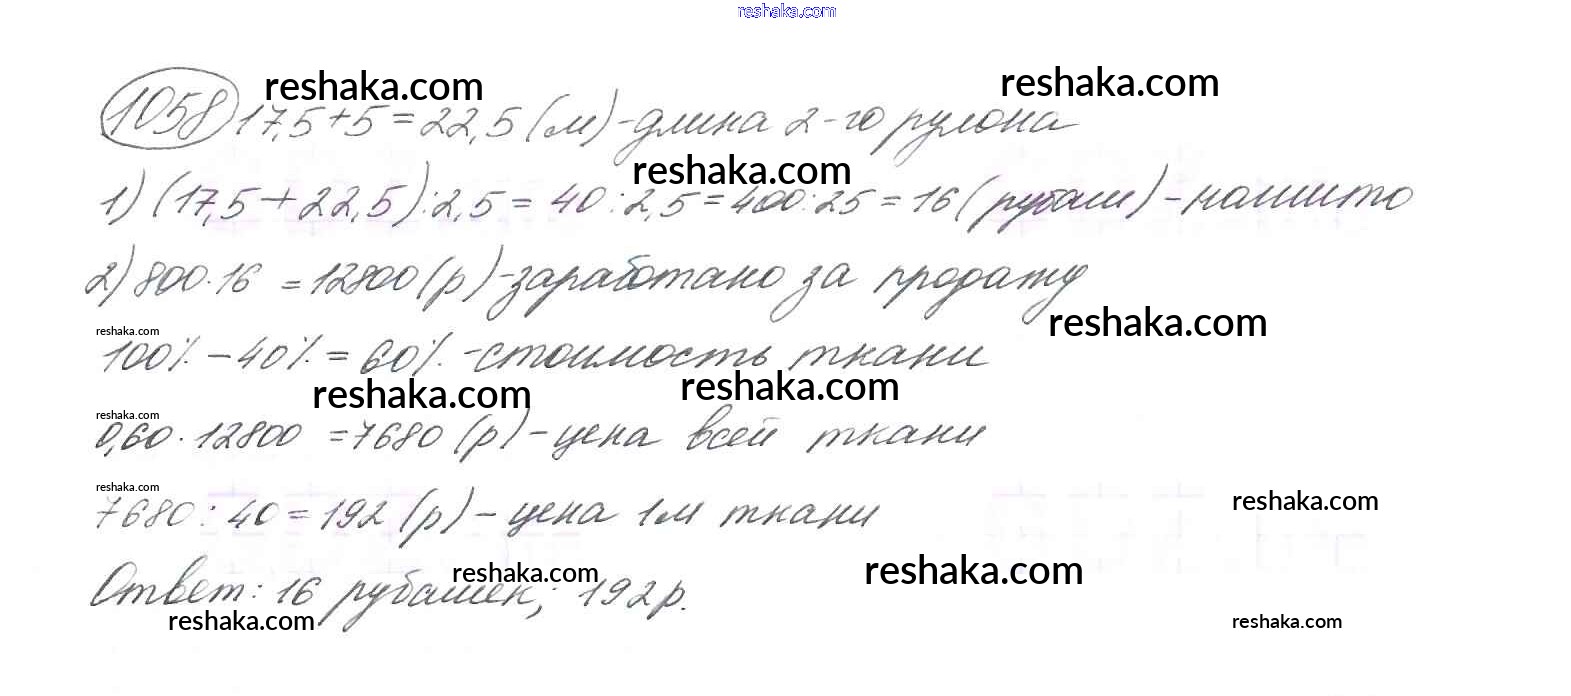 reshaka.com
reshaka.com reshaka.com
1058 17,5+5=22,5 (м)-длина 2-го рулона
reshaka.com
1) (17,5+22,5):2,5 = 40:2,5=400:25=16 (рубаш) - нашито
2) 800·16 =12800 (р)-заработано за продажу
reshaka.com reshaka.com
100% -40% = 60% -стоимость ткани
reshaka.com reshaka.com
reshaka.com
0,60·12800 =7680 (р)-цена всей ткани
reshaka.com reshaka.com
7680:40=192 (р) - цена 1м ткани
reshaka.com reshaka.com
Ответ: 16 рубашек; 192р.
reshaka.com reshaka.com